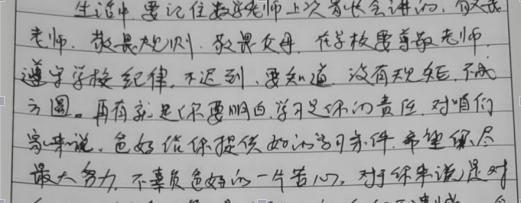 生活中,要记住数学老师上次家长会讲的,敬畏
老师,敬畏规则,敬畏父母,在学校要尊敬老师
遵守学校纪律,不迟到,要知道没有规矩,不成
方圆。再有就是你要明白,学习是你的责任,对咱们
家来说,爸妈给你提供好的学习条件,希望你尽
最大努力,不辜负爸妈的一片苦心。对于你来说是对